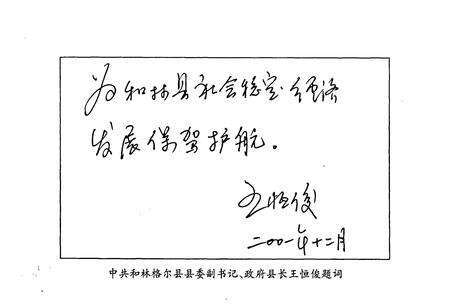 为和林县社会稳定经济
发展保驾护航。
王恒俊
二〇〇一年十二月
中共和林格尔县县委副书记、政府县长王恒俊题词